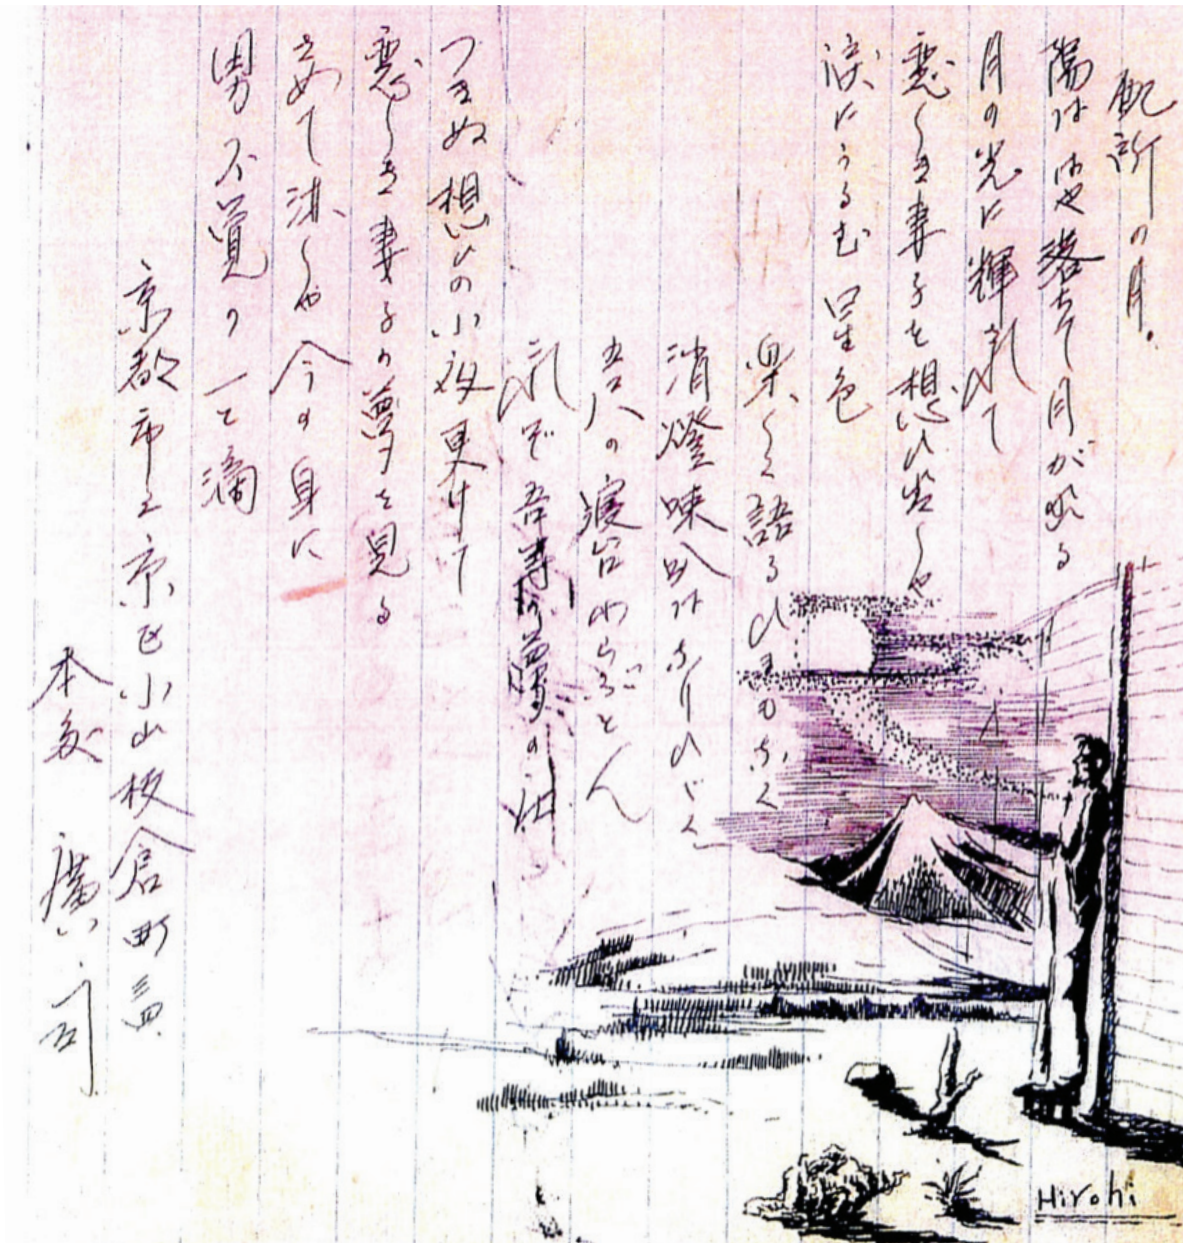 配所の月。
陽ははや落ちて月が出る
月の光に輝れて
恋しき妻子を想ひ出しや
涙にうるむ星色
楽しく語るひまもなく
消燈喇叭はなりひびく
吾人の寝台わらぶとん
の夢の
つきぬ想ひの小夜更けて
恋しき妻子の夢を見る
さめて淋しや今の身に
男不覚の一と滴
京都市上京区小山板倉町三四
本多 廣司
Hirohi